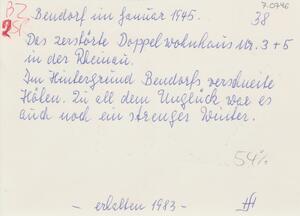 7.0746
BZ
2 Bendorf im Januar 1945.
38
Das zerstörte Doppelwohnhaus Nr. 3+5
in der Rheinau.
Im Hintergrund Bendorfs verschneite
Höhen. Zu all dem Unglück war es
auch noch ein strenger Winter.
54%
– erhalten 1983 –